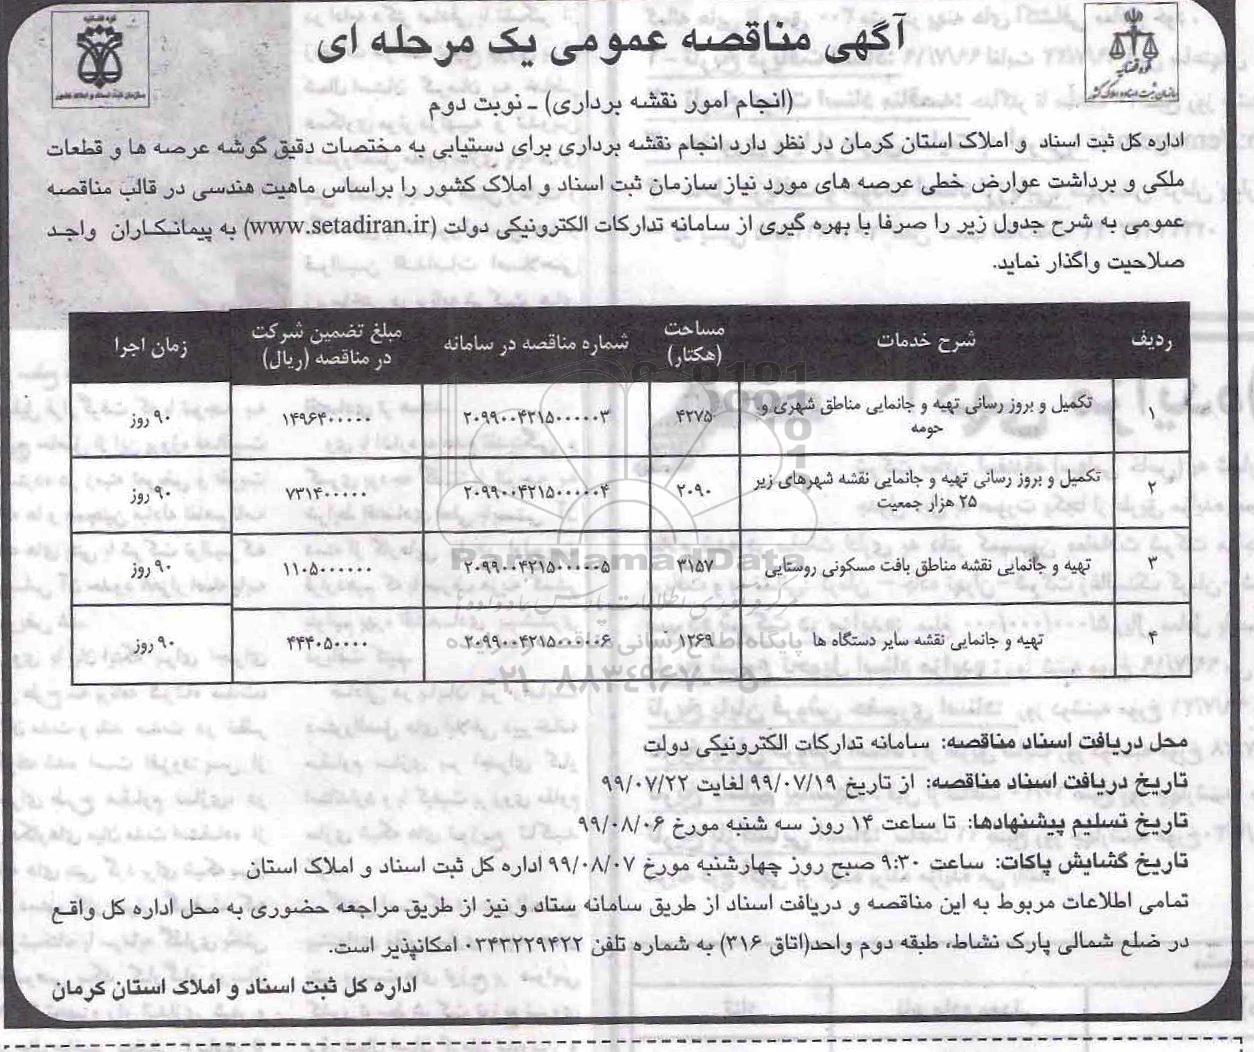 آگهی مناقصه عمومی یک مرحله ای
(انجام امور نقشه برداری) ـ نوبت دوم
اداره کل ثبت اسناد و املاک استان کرمان در نظر دارد انجام نقشه برداری برای دستیابی به مختصات دقیق گوشه عرصه ها و قطعات
ملکی و برداشت عوارض خطی عرصه های مورد نیاز سازمان ثبت اسناد و املاک کشور را براساس ماهیت هندسی در قالب مناقصه
عمومی به شرح جدول زیر را صرفا با بهره گیری از سامانه تدارکات الکترونیکی دولت (www.setadiran.ir) به پیمانکاران واجد
صلاحیت واگذار نماید.
ردیف شرح خدمات مساحت (هکتار) شماره مناقصه در سامانه مبلغ تضمین شرکت در مناقصه (ریال) زمان اجرا
۱ تکمیل و بروز رسانی تهیه و جانمایی مناطق شهری و حومه ۴۲۷۵ ۲۰۹۹۰۰۴۲۱۵۰۰۰۰۰۳ ۱۴۹۶۴۰۰۰۰۰ ۹۰ روز
۲ تکمیل و بروز رسانی تهیه و جانمایی نقشه شهرهای زیر ۲۵ هزار جمعیت ۲۰۹۰ ۲۰۹۹۰۰۴۲۱۵۰۰۰۰۰۴ ۷۳۱۴۰۰۰۰۰ ۹۰ روز
۳ تهیه و جانمایی نقشه مناطق بافت مسکونی روستایی ۳۱۵۷ ۲۰۹۹۰۰۴۲۱۵۰۰۰۰۰۵ ۱۱۰۵۰۰۰۰۰۰ ۹۰ روز
۴ تهیه و جانمایی نقشه سایر دستگاه ها ۱۲۶۹ ۲۰۹۹۰۰۴۲۱۵۰۰۰۰۰۶ ۴۴۴۰۵۰۰۰۰ ۹۰ روز
ParsNamadData
۰۲۱-۸۸۳۴۹۶۷۰-۵
محل دریافت اسناد مناقصه: سامانه تدارکات الکترونیکی دولت
تاریخ دریافت اسناد مناقصه: از تاریخ ۹۹/۰۷/۱۹ لغایت ۹۹/۰۷/۲۲
تاریخ تسلیم پیشنهادها: تا ساعت ۱۴ روز سه شنبه مورخ ۹۹/۰۸/۰۶
تاریخ گشایش پاکات: ساعت ۹:۳۰ صبح روز چهارشنبه مورخ ۹۹/۰۸/۰۷ اداره کل ثبت اسناد و املاک استان
تمامی اطلاعات مربوط به این مناقصه و دریافت اسناد از طریق سامانه ستاد و نیز از طریق مراجعه حضوری به محل اداره کل واقع
در ضلع شمالی پارک نشاط، طبقه دوم واحد(اتاق ۳۱۶) به شماره تلفن ۰۳۴۳۲۲۹۴۲۲ امکانپذیر است.
اداره کل ثبت اسناد و املاک استان کرمان